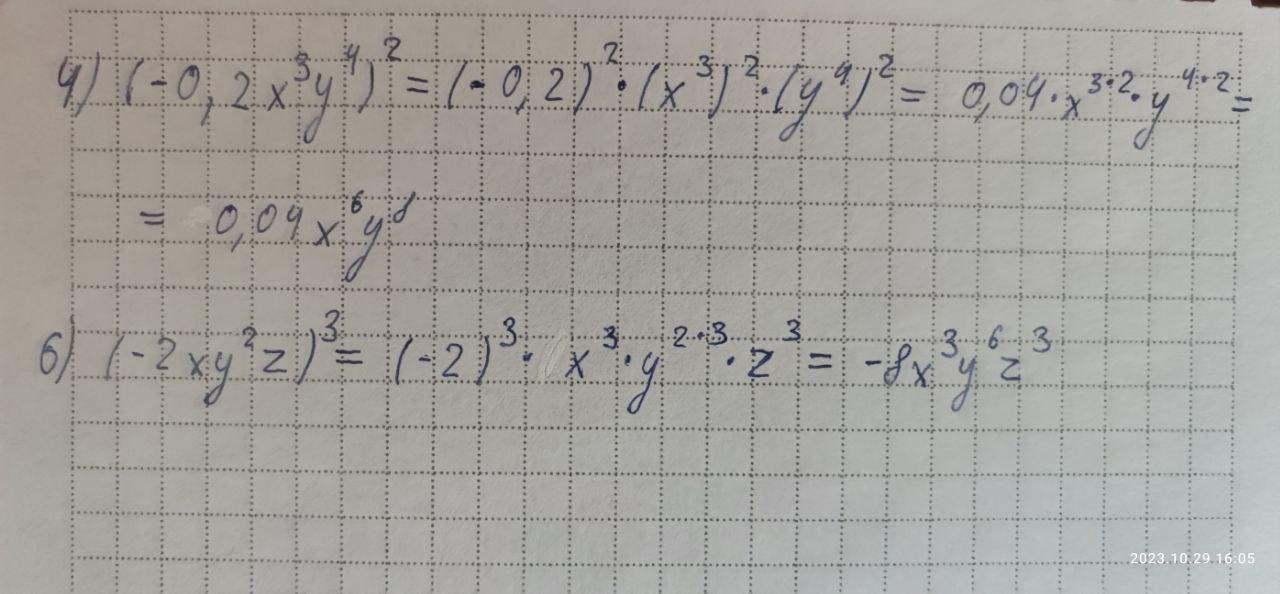 4) (-0,2x³y⁴)² = (-0,2)² · (x³)² · (y⁴)² = 0,04 · x³˙² · y⁴˙² =
= 0,04x⁶y⁸
6) (-2xy²z)³ = (-2)³ · x³ · y²˙³ · z³ = -8x³y⁶z³
2023.10.29 16:05